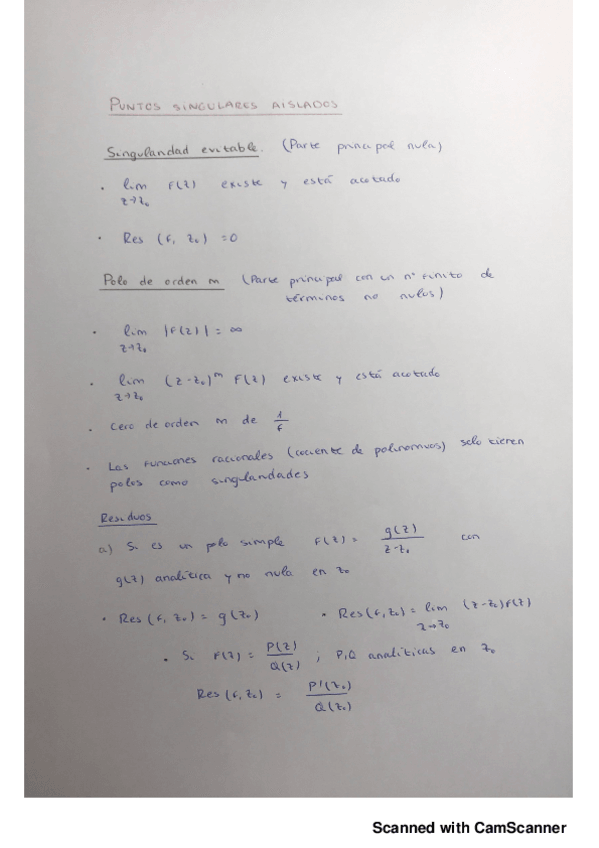 PUNTOS SINGULARES AISLADOS
Singularidad evitable. (Parte principal nula)
· lim f(z) existe y está acotado
z→z₀
· Res (f, z₀) = 0
Polo de orden m (Parte principal con un nº finito de
términos no nulos)
· lim |f(z)| = ∞
z→z₀
· lim (z-z₀)ᵐ f(z) existe y está acotado
z→z₀
· Cero de orden m de 1/f
· Las funciones racionales (cociente de polinomios) solo tienen
polos como singularidades
Residuos
a) Si es un polo simple f(z) = g(z)/(z-z₀) con
g(z) analítica y no nula en z₀
· Res (f, z₀) = g(z₀) · Res (f, z₀) = lim (z-z₀) f(z)
z→z₀
· Si f(z) = P(z)/Q(z) ; P,Q analíticas en z₀
Res (f, z₀) = P'(z₀)/Q(z₀)
Scanned with CamScanner